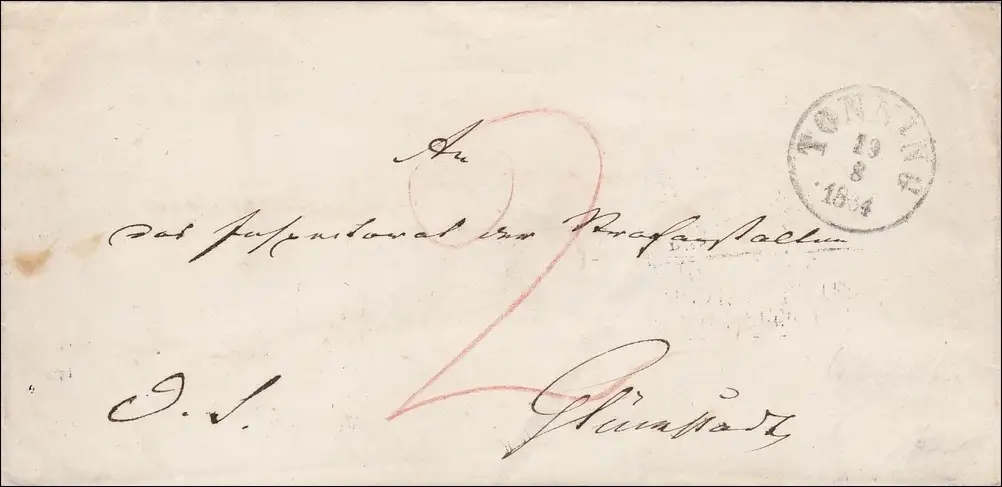 TØNNING
19
8
1864
2
An
das Inspectorat der Strafanstalten
D. S.
Glückstadt